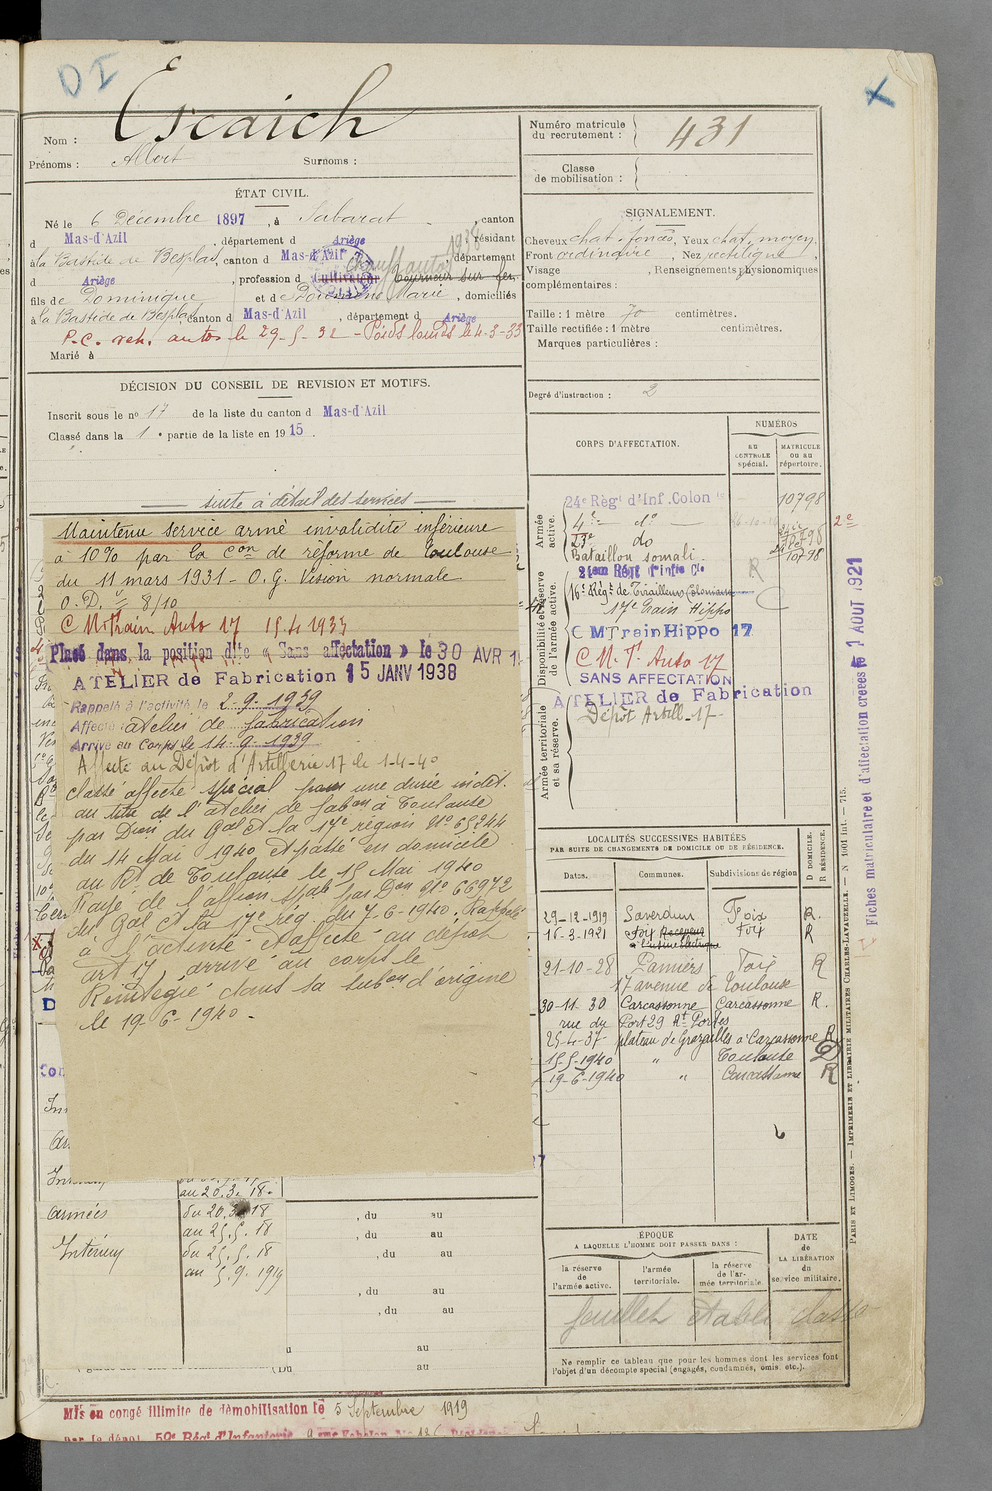 D I
X
Nom : Escaich
Prénoms : Albert Surnoms :
Numéro matricule du recrutement : 431
Classe de mobilisation :
ÉTAT CIVIL.
Né le 6 Décembre 1897, à Sabarat, canton
d Mas-d'Azil, département d Ariège résidant
à la Bastide de Besplas, canton d Mas-d'Azil, département
d Ariège, profession d Cultivateur Tourneur sur fer
chauff autos 1938
fils de Dominique et de Marie, domiciliés
à la Bastide de Besplas, canton d Mas-d'Azil, département d Ariège
P.C. veh. autos le 29-5-32 - Poids lourds le 4-3-33
Marié à
SIGNALEMENT.
Cheveux chat. foncés, Yeux chat. moyen,
Front ordinaire, Nez rectiligne,
Visage , Renseignements physionomiques
complémentaires :
Taille : 1 mètre 70 centimètres.
Taille rectifiée : 1 mètre centimètres.
Marques particulières :
Degré d'instruction : 2
DÉCISION DU CONSEIL DE REVISION ET MOTIFS.
Inscrit sous le nº 17 de la liste du canton d Mas-d'Azil
Classé dans la 1e partie de la liste en 1915.
suite à détail des services
Maintenu service armé invalidité inférieure
à 10% par la con de réforme de Toulouse
du 11 mars 1931 - O.G. Vision normale
O.D. V = 8/10
C M Train Auto 17 15.4.1933
Placé dans la position dite « Sans affectation » le 30 AVR 1
ATELIER de Fabrication 15 JANV 1938
Rappelé à l'activité le 2-9-1939
Affecté atelier de fabrication
Arrivé au Corps le 14-9-1939
Affecté au Dépôt d'Artillerie 17 le 1-4-40
classé affecté spécial pour une durée indét.
au titre de l'atelier de fabon à Toulouse
par Don du Gal Ct la 17e région Nº 65244
du 14 Mai 1940 et passé en domicile
au Rt de Toulouse le 15 Mai 1940
Rayé de l'affon spale par Don Nº 66972
du Gal Ct la 17e rég. du 7-6-1940. Rappelé
à l'activité. Affecté au dépôt
art 17, arrivé au corps le
Réintégré dans sa subon d'origine
le 19-6-1940 -
CORPS D'AFFECTATION.
NUMÉROS
AU CONTROLE spécial.
MATRICULE OU AU répertoire.
Armée active.
24e Régt d'Inf. Colonle 10798
4e do
23e do
Bataillon somali 10798
2e
Disponibilité et réserve de l'armée active.
24em Régt d'Infie Cle
16e Régt de Tirailleurs Coloniaux
17e Train Hippo
C M Train Hippo 17
C M. T. Auto 17
SANS AFFECTATION
Armée territoriale et sa réserve.
ATELIER de Fabrication
Dépôt Artill. 17
LOCALITÉS SUCCESSIVES HABITÉES
PAR SUITE DE CHANGEMENTS DE DOMICILE OU DE RÉSIDENCE.
D DOMICILE.
R RÉSIDENCE.
Dates. Communes. Subdivisions de région
29-12-1919 Saverdun Foix R.
16-3-1921 Foix Foix R
à l'usine électrique
21-10-28 Pamiers Foix R
17 avenue de Toulouse
30-11-30 Carcassonne Carcassonne R.
rue du Port 29
25-4-37 plateau de Grazailles à Carcassonne R
15-5-1940 " Toulouse D
19-6-1940 " Carcassonne R
Fiches matriculaire et d'affectation créées le 1 AOUT 1921
PARIS ET LIMOGES. — IMPRIMERIE ET LIBRAIRIE MILITAIRES CHARLES-LAVAUZELLE. — N 1001 int. — 715.
au 20.3.18.
armées du 20.3.18
au 25.5.18
Intérieur du 25.5.18
au 5.9.1919
, du au
, du au
, du au
, du au
, du au
au
au
ÉPOQUE
A LAQUELLE L'HOMME DOIT PASSER DANS :
la réserve de l'armée active.
l'armée territoriale.
la réserve de l'armée territoriale.
DATE de LA LIBÉRATION du service militaire.
feuillet établi classe
Ne remplir ce tableau que pour les hommes dont les services font
l'objet d'un décompte spécial (engagés, condamnés, omis, etc.).
Mis en congé illimité de démobilisation le 5 Septembre 1919
par le dépôt 59e Régt d'Infanterie